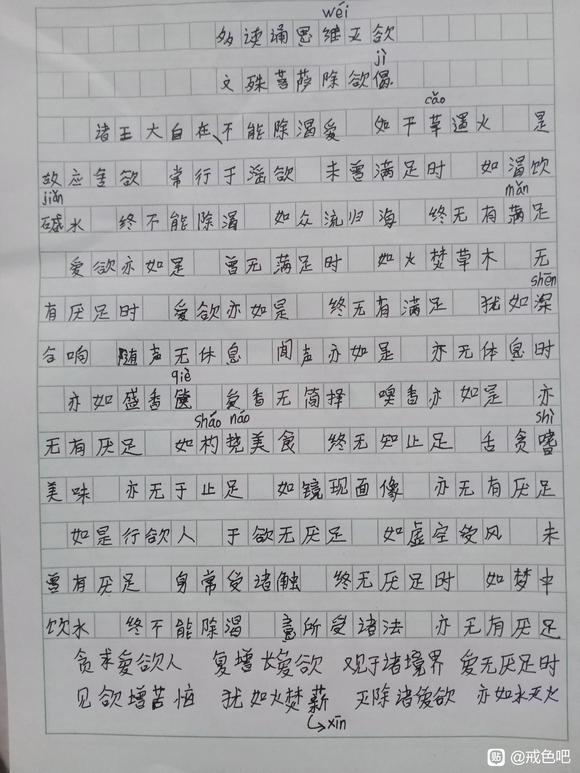 wéi
多读诵思维灭欲
jì
文殊菩萨除欲偈
cǎo
诸王大自在、不能除渴爱 如干草遇火 是
故应舍欲 常行于淫欲 未曾满足时 如渴饮
jiǎn mǎn
碱水 终不能除渴 如众流归海 终无有满足
爱欲亦如是 曾无满足时 如火焚草木 无
shēn
有厌足时 爱欲亦如是 终无有满足 犹如深
谷响 随声无休息 闻声亦如是 亦无休息时
qiè
亦如盛香箧 受香无简择 嗅香亦如是 亦
sháo náo shì
无有厌足 如杓挠美食 终无知止足 舌贪嗜
美味 亦无于止足 如镜现面像 亦无有厌足
如是行欲人 于欲无厌足 如虚空受风 未
曾有厌足 身常受诸触 终无厌足时 如梦中
饮水 终不能除渴 意所受诸法 亦无有厌足
贪求爱欲人 复增长爱欲 观于诸境界 爱无厌足时
见欲增苦恼 犹如火焚薪 灭除诸爱欲 亦如水灭火
xīn
贴 @戒色吧